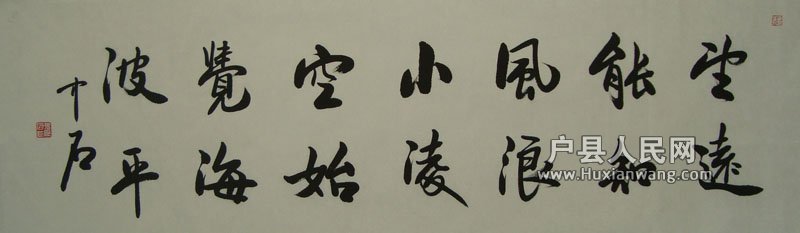 望遠
能知
風浪
小淩
空始
覺海
波平
中石
户县人民网
www.Huxianwang.com